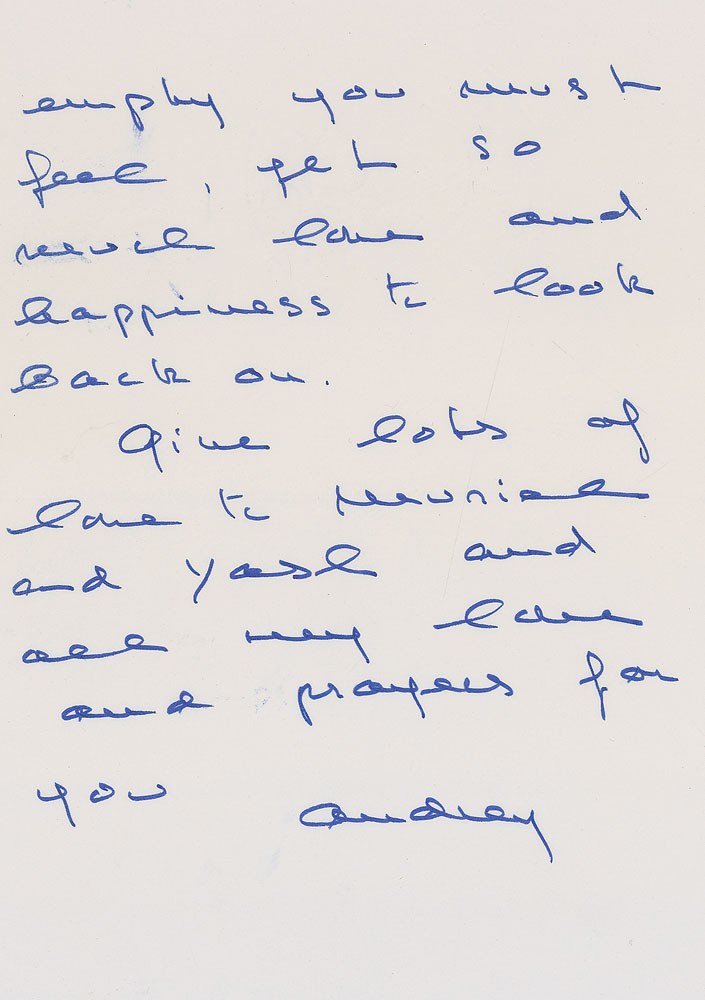 empty you must
feel, yet so
much love and
happiness to look
back on.
Give lots of
love to Muriel
and Yash and
all my love
and prayers for
you Audrey